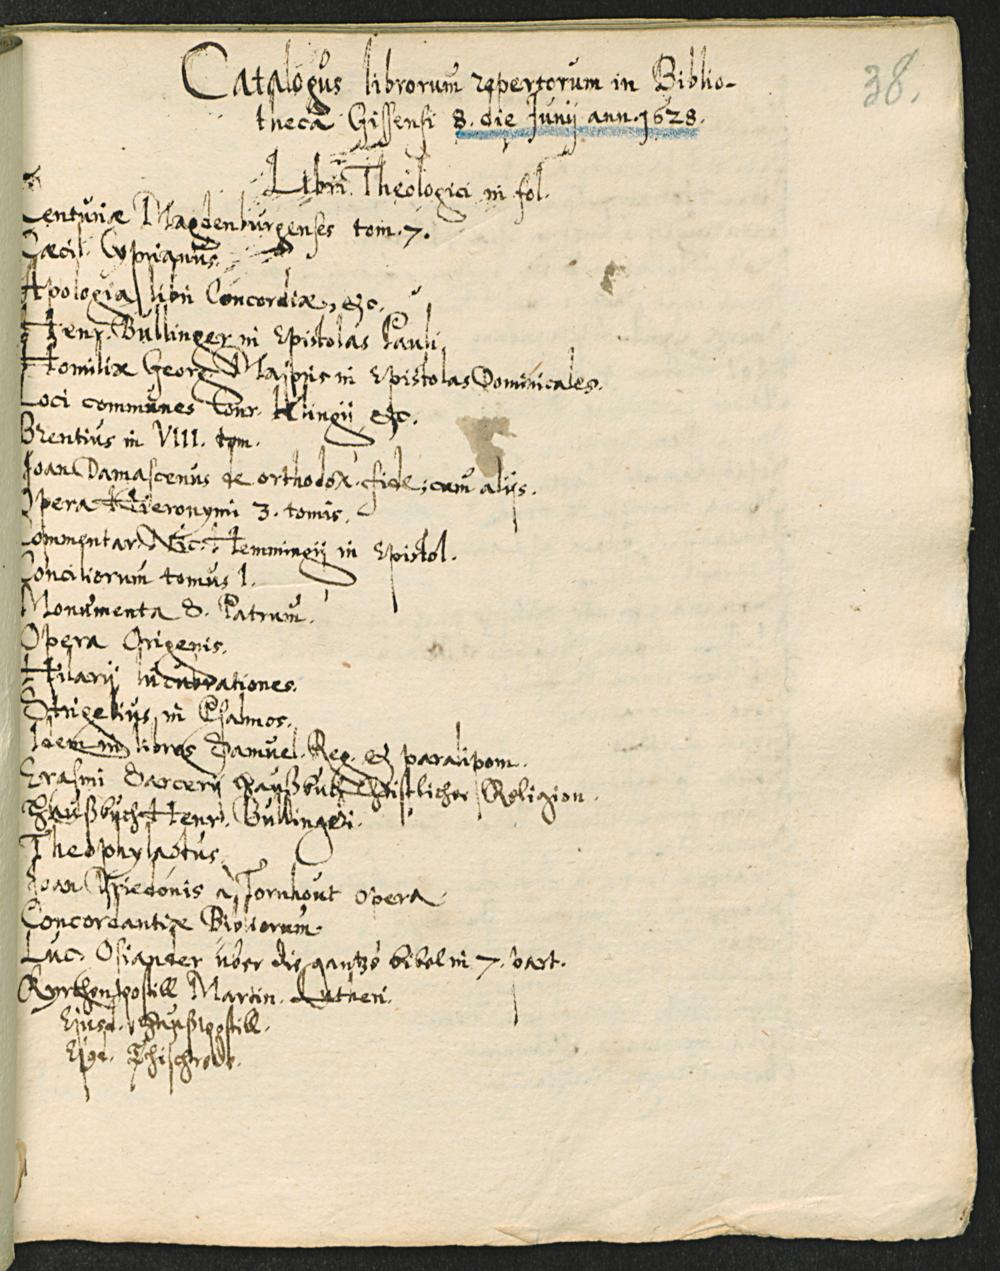 38.
Catalogus librorum repertorum in Biblio-
theca Gissensi 8. die Junij ann. 1628.
Libri Theologici in fol.
Centuriæ Magdenburgenses tom. 7.
Cæcil. Cyprianus.
Apologia libri Concordiæ, etc.
Henr. Bullinger in Epistolas Pauli
Homiliæ Georg. Majoris in Epistolas Dominicales.
Loci communes Conr. Klingij etc.
Brentius in VIII. tom.
Joan Damascenus de orthodox. fide; cum alijs.
Opera Hieronymi 3. tomis.
Commentar. Nic. Hemmingij in Epistol.
Conciliorum tomus 1.
Monumenta S. Patrum.
Opera Origenis.
Hilarij lucubrationes.
Strigelius in Psalmos.
Idem in libros Samuel. Reg. et paralipom.
Erasmi Sarcerij Haußbuch Christlicher Religion.
Haußbuch Henr. Bullingeri.
Theophylactus.
Joan. Driedonis a Tornhout opera
Concordantiæ Bibliorum.
Luc. Osiander über die gantze bibel in 7. part.
Kyrchenpostill Martin. Lutheri.
Ejusd. Haußpostill.
Ejsd. Thischrede.